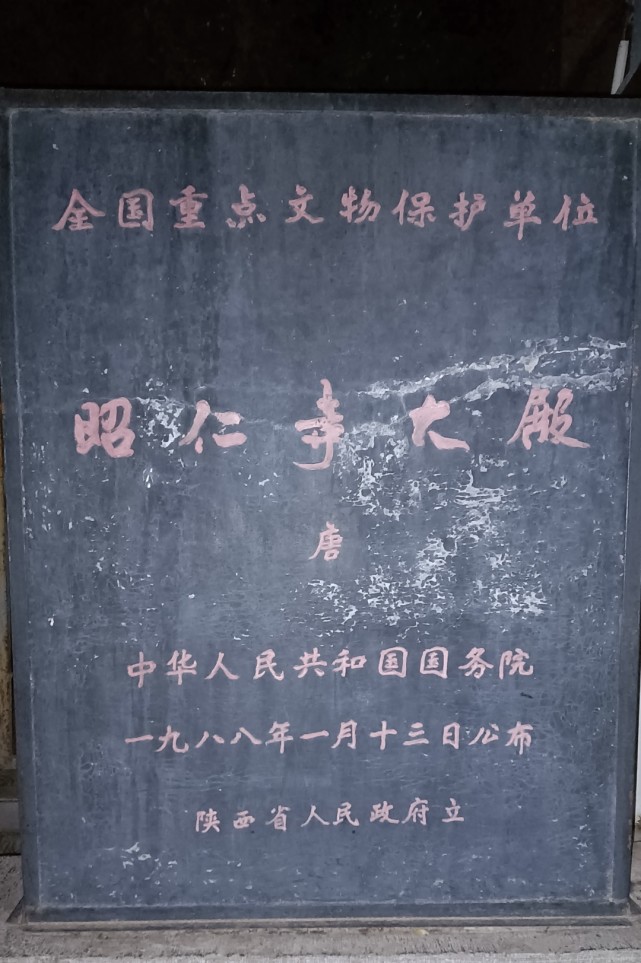 全国重点文物保护单位
昭仁寺大殿
唐
中华人民共和国国务院
一九八八年一月十三日公布
陕西省人民政府立